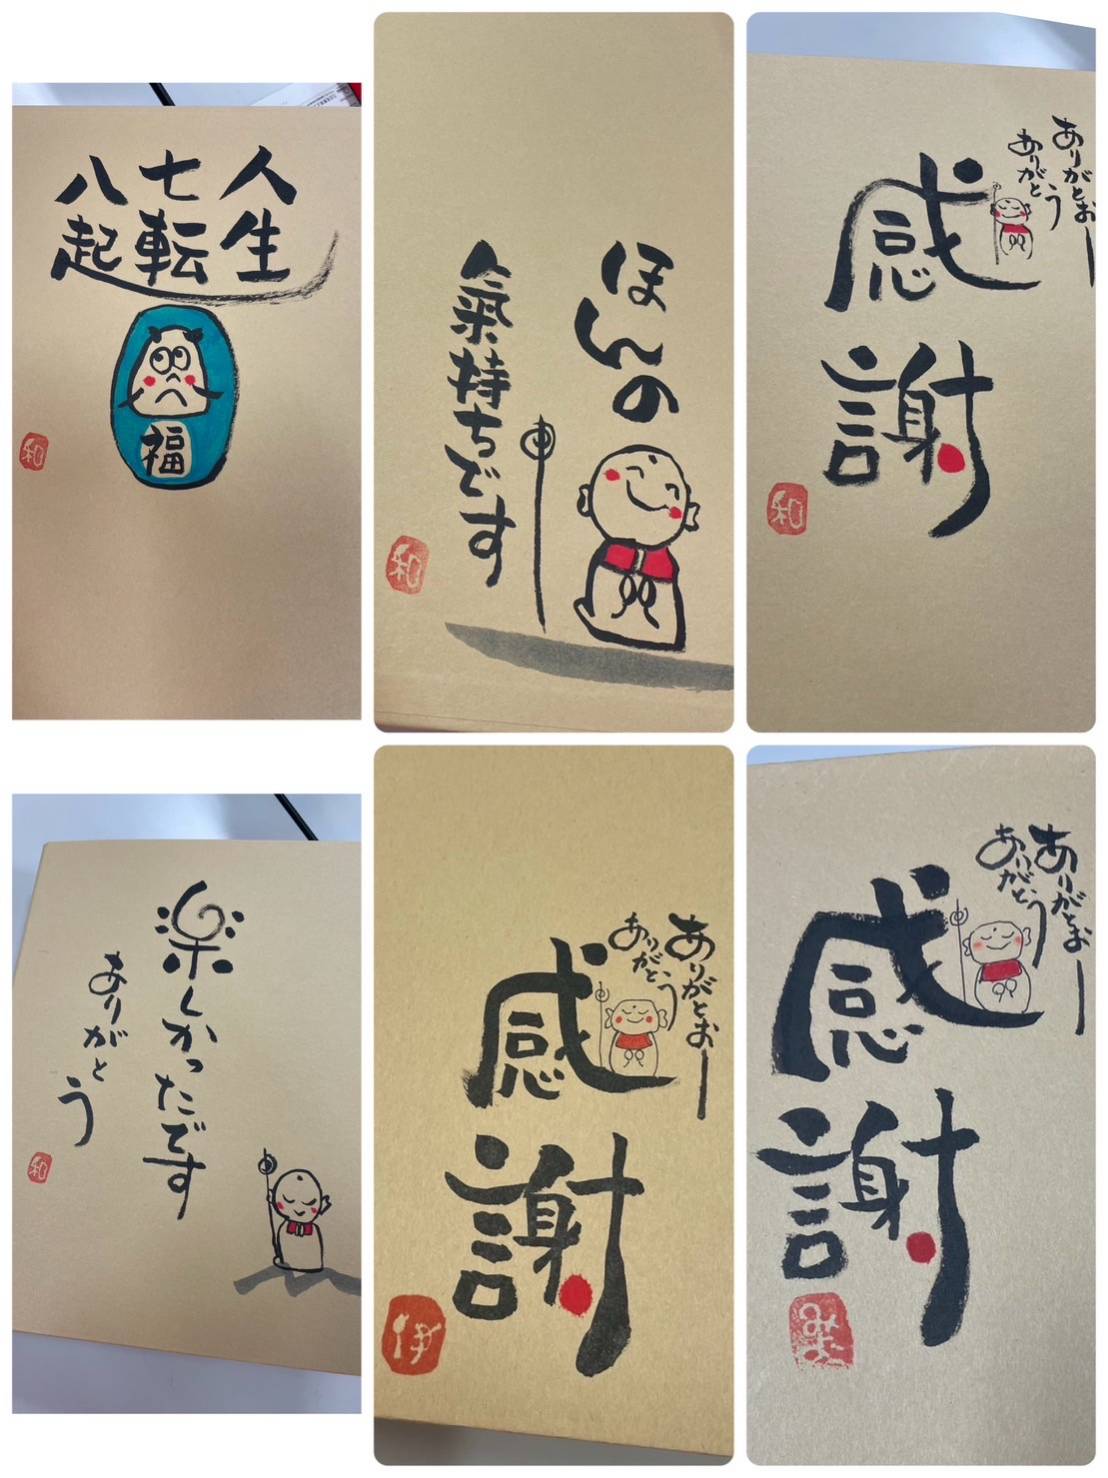 人生
七転
八起
福
和
ほんの
氣持ちです
和
ありがとおー
ありがとう
感
謝
和
楽しかったです
ありがとう
和
ありがとおー
ありがとう
感
謝
ありがとおー
ありがとう
感
謝